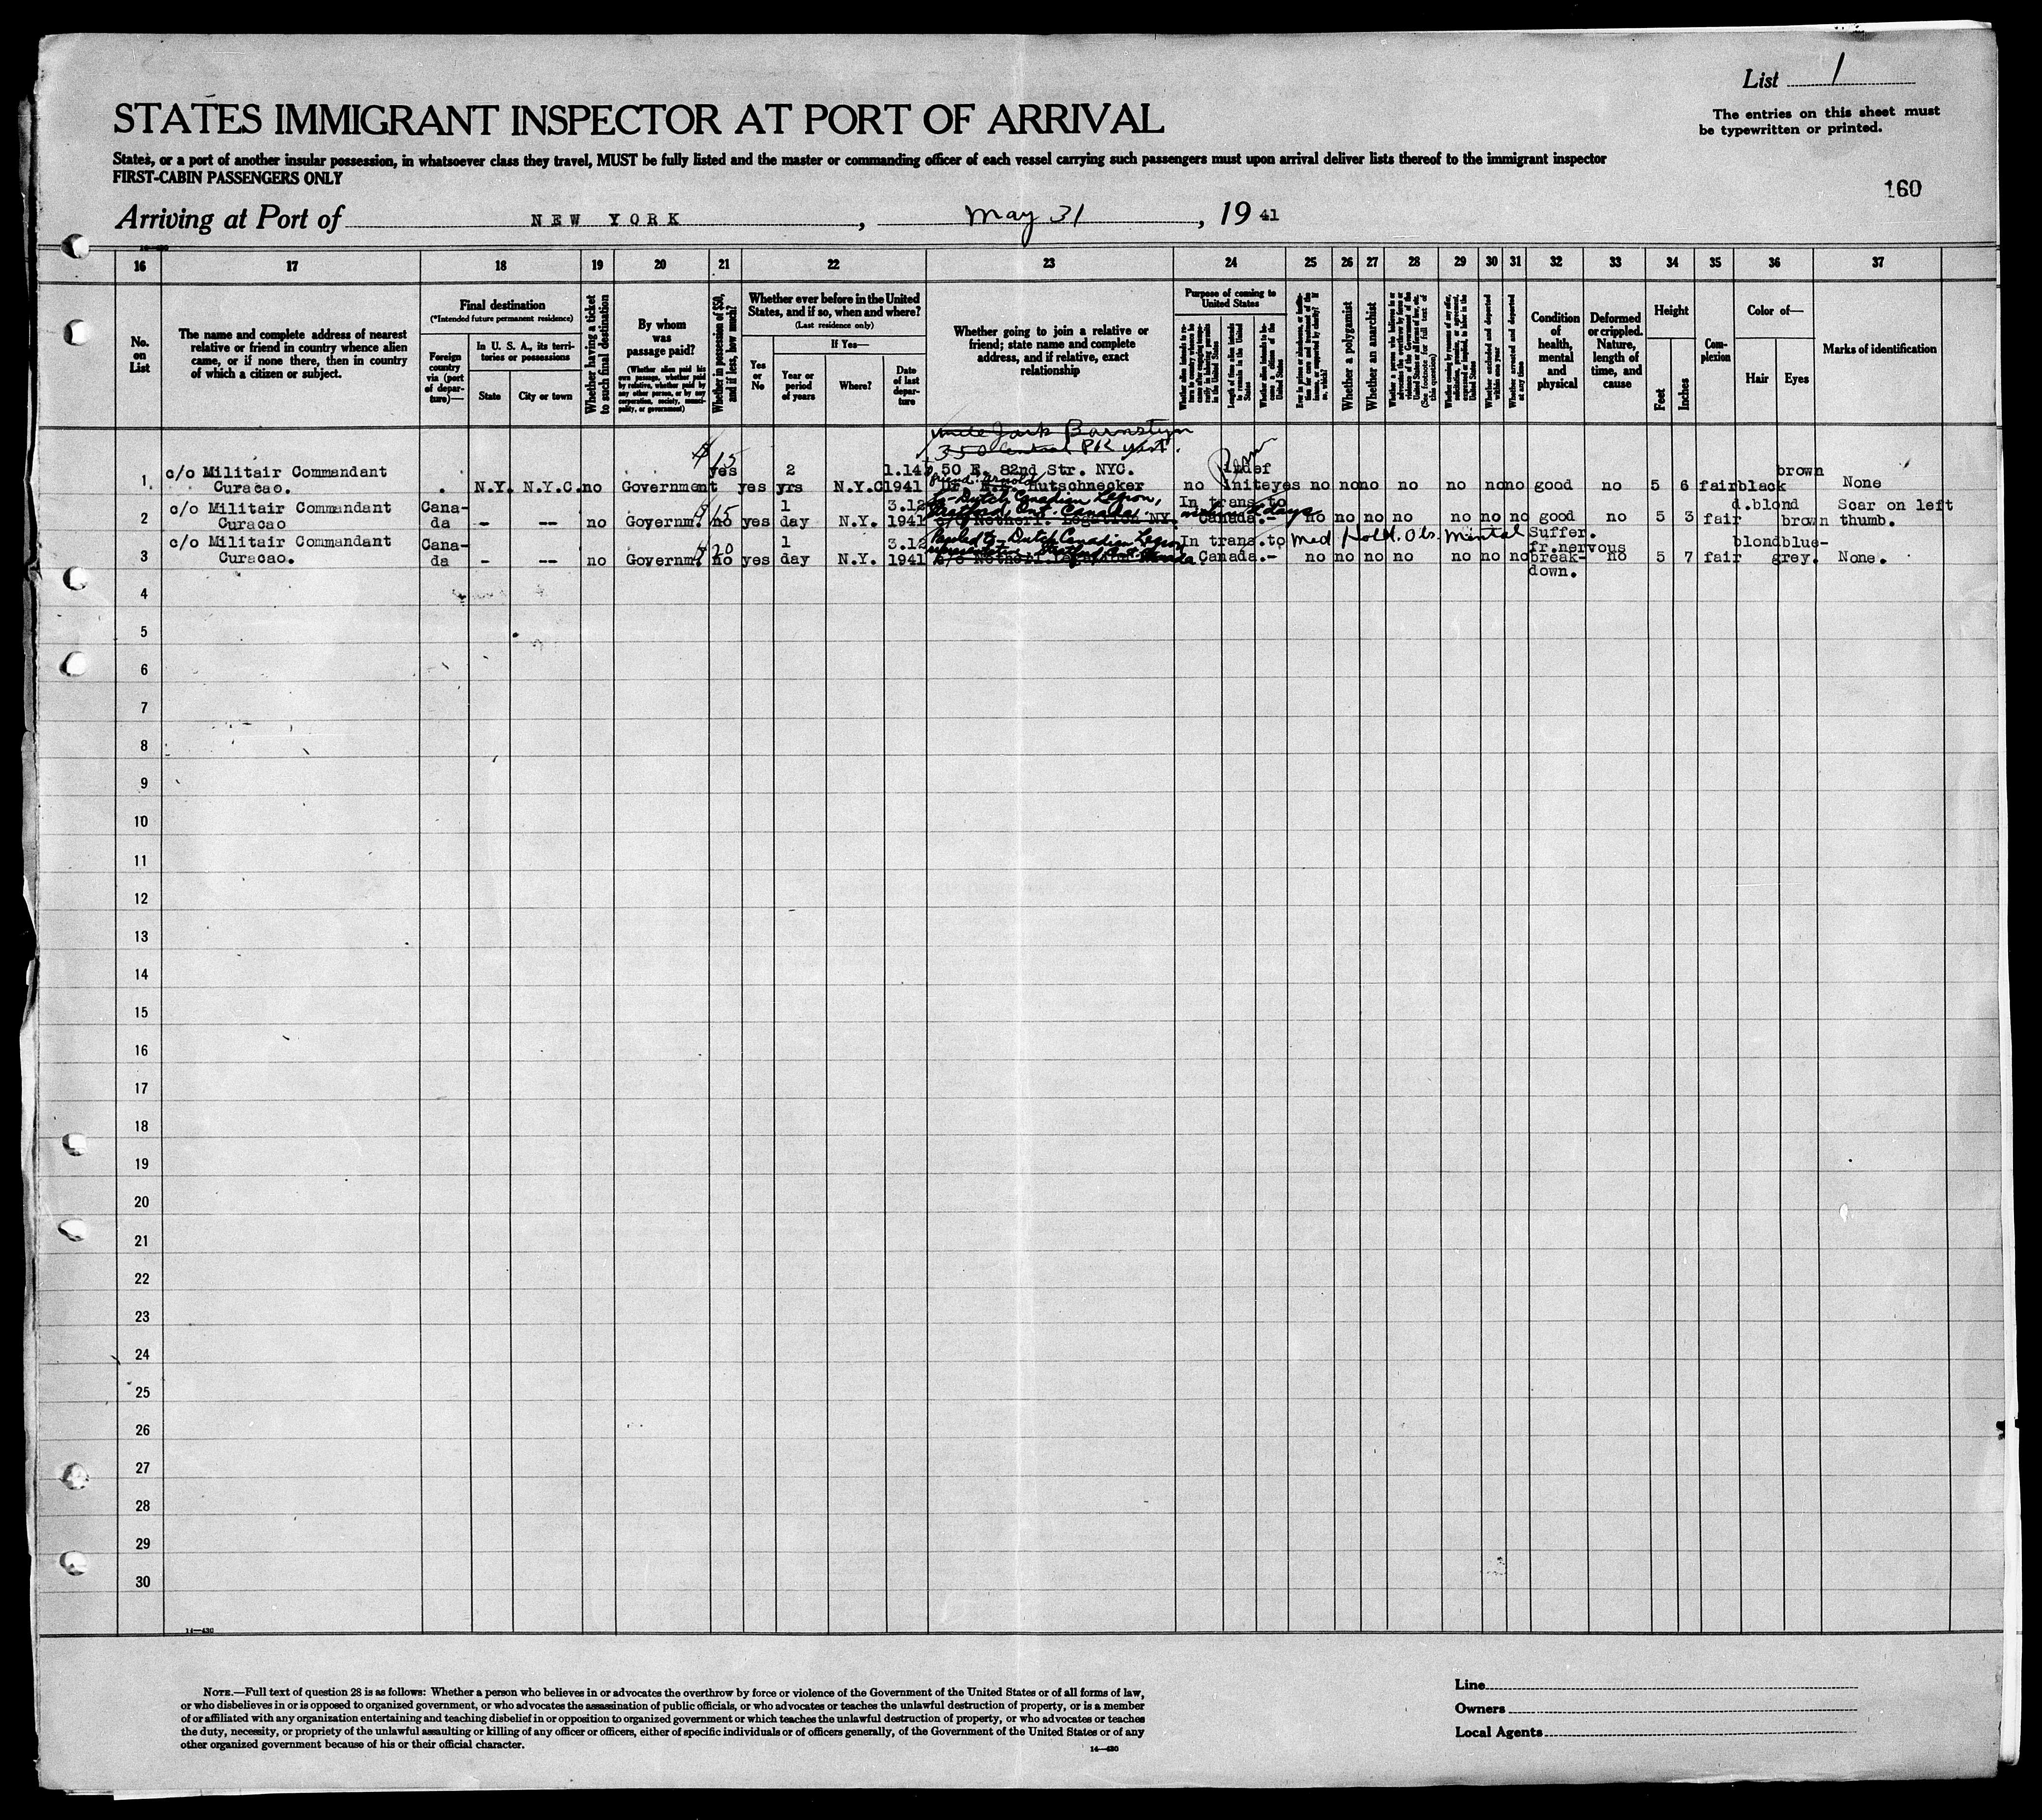 List 1
The entries on this sheet must
be typewritten or printed.
STATES IMMIGRANT INSPECTOR AT PORT OF ARRIVAL
States, or a port of another insular possession, in whatsoever class they travel, MUST be fully listed and the master or commanding officer of each vessel carrying such passengers must upon arrival deliver lists thereof to the immigrant inspector
FIRST-CABIN PASSENGERS ONLY
160
Arriving at Port of NEW YORK, May 31, 1941
16 17 18 19 20 21 22 23 24 25 26 27 28 29 30 31 32 33 34 35 36 37
No.
on
List
The name and complete address of nearest
relative or friend in country whence alien
came, or if none there, then in country
of which a citizen or subject.
Final destination
(*Intended future permanent residence)
Foreign
country
via (port
of depar-
ture)—
In U. S. A., its terri-
tories or possessions
State
City or town
Whether having a ticket
to such final destination
By whom
was
passage paid?
(Whether alien paid his
own passage, whether paid
by relative, whether paid by
any other person, or by any
corporation, society, munici-
pality, or government)
Whether in possession of $50,
and if less, how much?
Whether ever before in the United
States, and if so, when and where?
(Last residence only)
Yes
or
No
If Yes—
Year or
period
of years
Where?
Date
of last
depar-
ture
Whether going to join a relative or
friend; state name and complete
address, and if relative, exact
relationship
Purpose of coming to
United States
Length of time alien intends
to remain in the United
States
Whether a polygamist
Whether an anarchist
Whether excluded and deported
within one year
Whether arrested and deported
at any time
Condition
of
health,
mental
and
physical
Deformed
or crippled.
Nature,
length of
time, and
cause
Height
Feet
Inches
Com-
plexion
Color of—
Hair
Eyes
Marks of identification
uncle Jack Barnstyn
350 Central Pk West.
1 c/o Militair Commandant
Curacao.
N.Y. N.Y.C. no Government $15 yes yes 2 yrs N.Y.C 1.14 1941
50 E. 82nd Str. NYC.
friend: Arnold
Dr. Hutschnecker
no indef inite yes no no no no no no no good no 5 6 fair black brown None
2 c/o Militair Commandant
Curacao
Cana-
da - -- no Governm. $15 no yes 1 day N.Y. 3.12 1941
to-Dutch Canadian Legion,
Stratford, Ont. Canada.
c/o Netherl. Legation NY.
In trans.to
Canada.-
no no no no no no no good no 5 3 fair d.blond brown Scar on left
thumb.
3 c/o Militair Commandant
Curacao.
Cana-
da - -- no Governm. $20 no yes 1 day N.Y. 3.12 1941
Dutch Canadian Legion
In trans.to
Canada.-
Med Hold. Obs. Mental
no no no no no no no Suffer.
fr.nervous
break-
down.
no 5 7 fair blond blue-
grey. None.
4
5
6
7
8
9
10
11
12
13
14
15
16
17
18
19
20
21
22
23
24
25
26
27
28
29
30
14—430
NOTE.—Full text of question 28 is as follows: Whether a person who believes in or advocates the overthrow by force or violence of the Government of the United States or of all forms of law,
or who disbelieves in or is opposed to organized government, or who advocates the assassination of public officials, or who advocates or teaches the unlawful destruction of property, or is a member
of or affiliated with any organization entertaining and teaching disbelief in or opposition to organized government or which teaches the unlawful destruction of property, or who advocates or teaches
the duty, necessity, or propriety of the unlawful assaulting or killing of any officer or officers, either of specific individuals or of officers generally, of the Government of the United States or of any
other organized government because of his or their official character.
14—430
Line
Owners
Local Agents